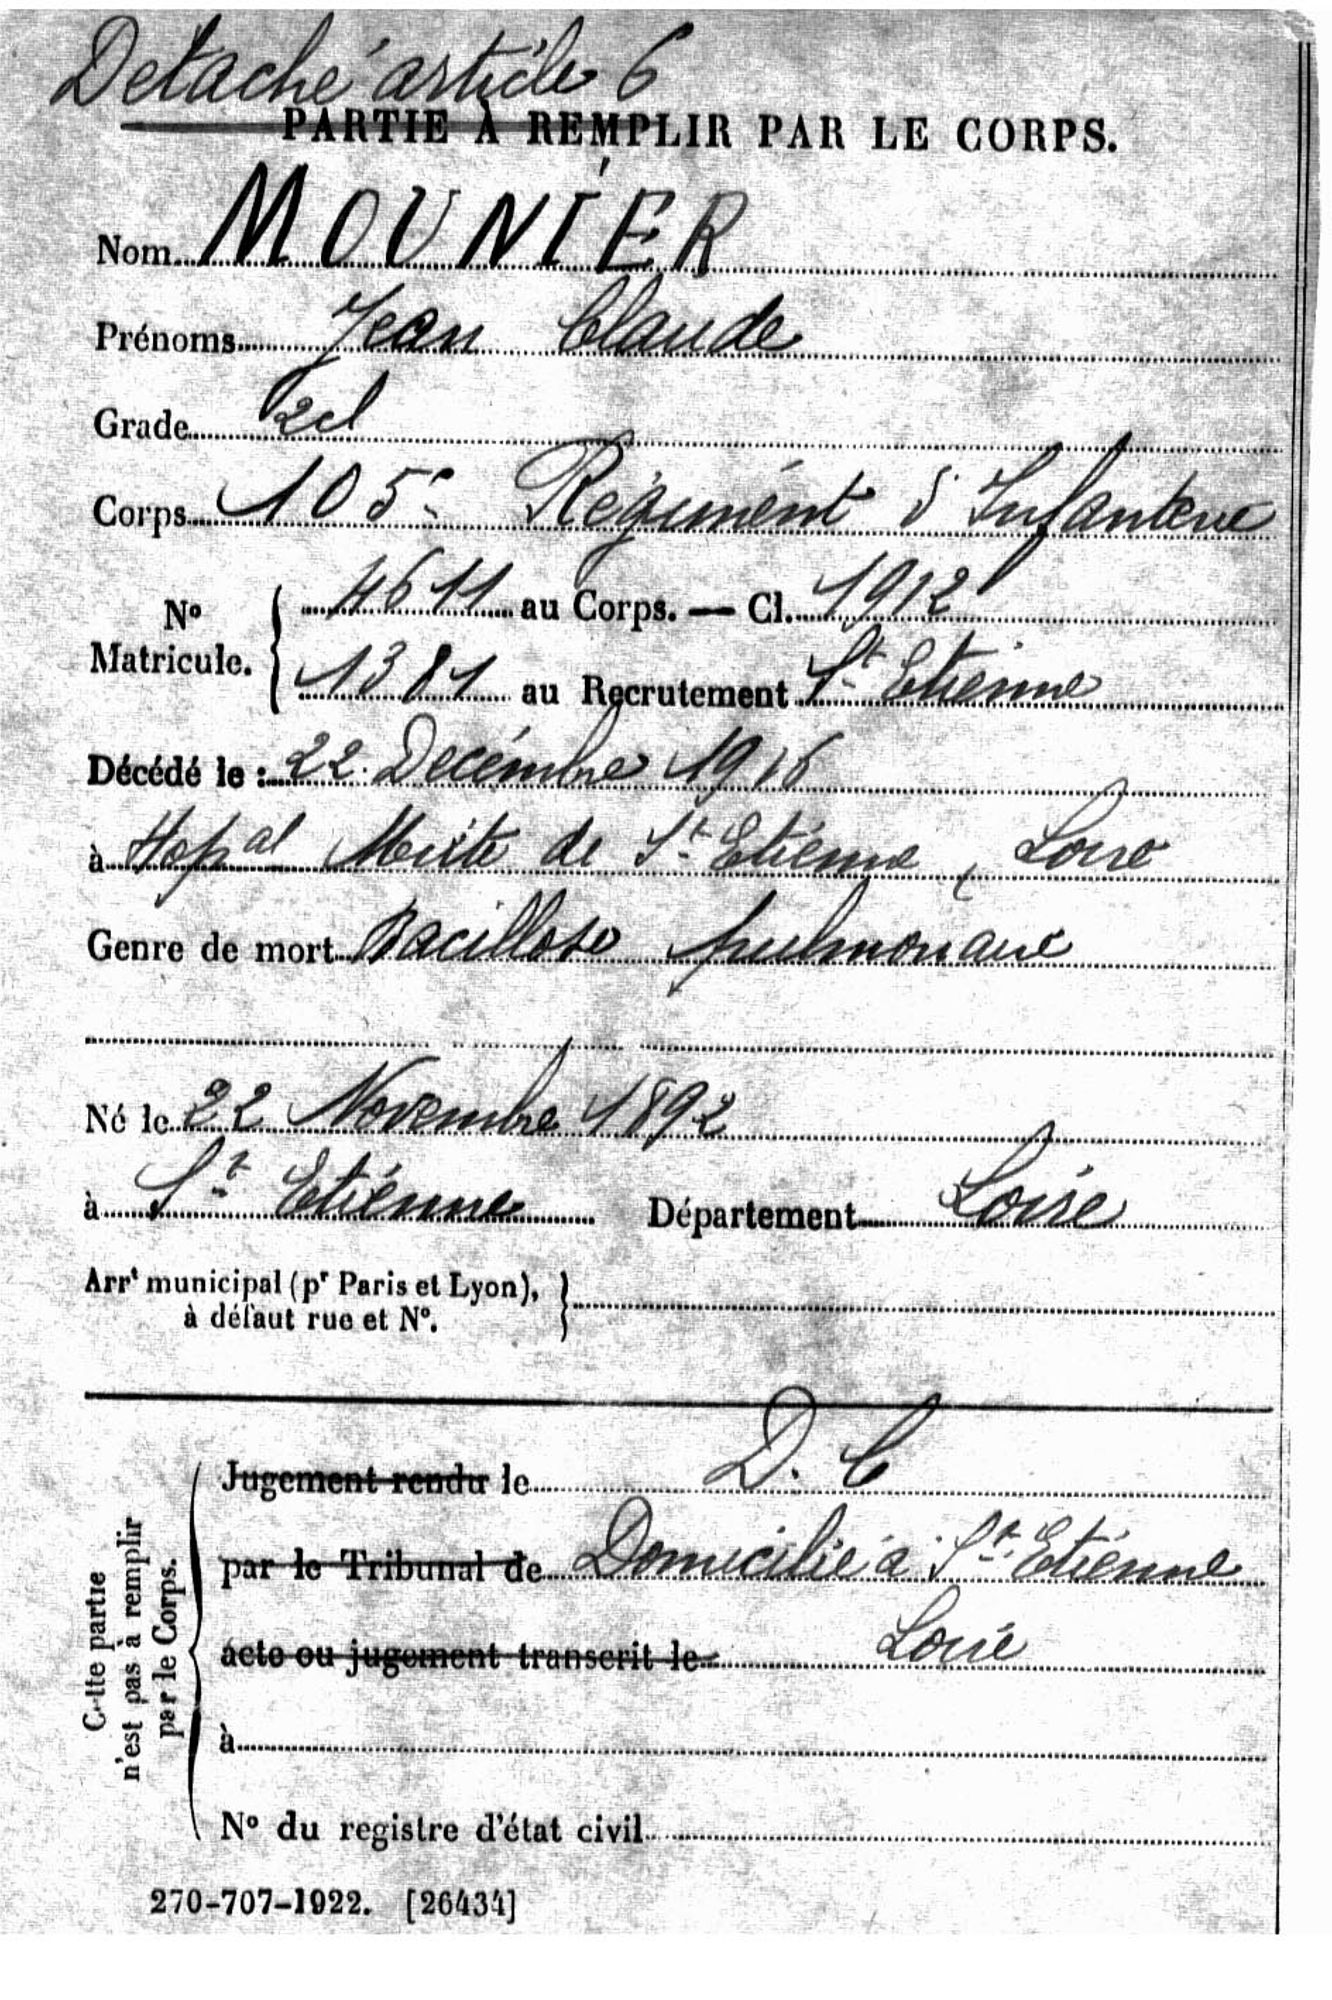 Détaché article 6
PARTIE À REMPLIR PAR LE CORPS.
Nom MOUNIER
Prénoms Jean Claude
Grade 2cl
Corps 105e Régiment d'Infanterie
No Matricule. { 4611 au Corps. — Cl. 1912
1381 au Recrutement St Etienne
Décédé le : 22 Décembre 1916
à Hopal Mixte de St Etienne, Loire
Genre de mort Bacillose pulmonaire
Né le 22 Novembre 1892
à St Etienne Département Loire
Arrt municipal (pr Paris et Lyon), }
à défaut rue et No.
Cette partie
n'est pas à remplir
par le Corps.
Jugement rendu le D. C
par le Tribunal de Domicilié à St Etienne
acte ou jugement transcrit le Loire
à
No du registre d'état civil
270-707-1922. [26434]